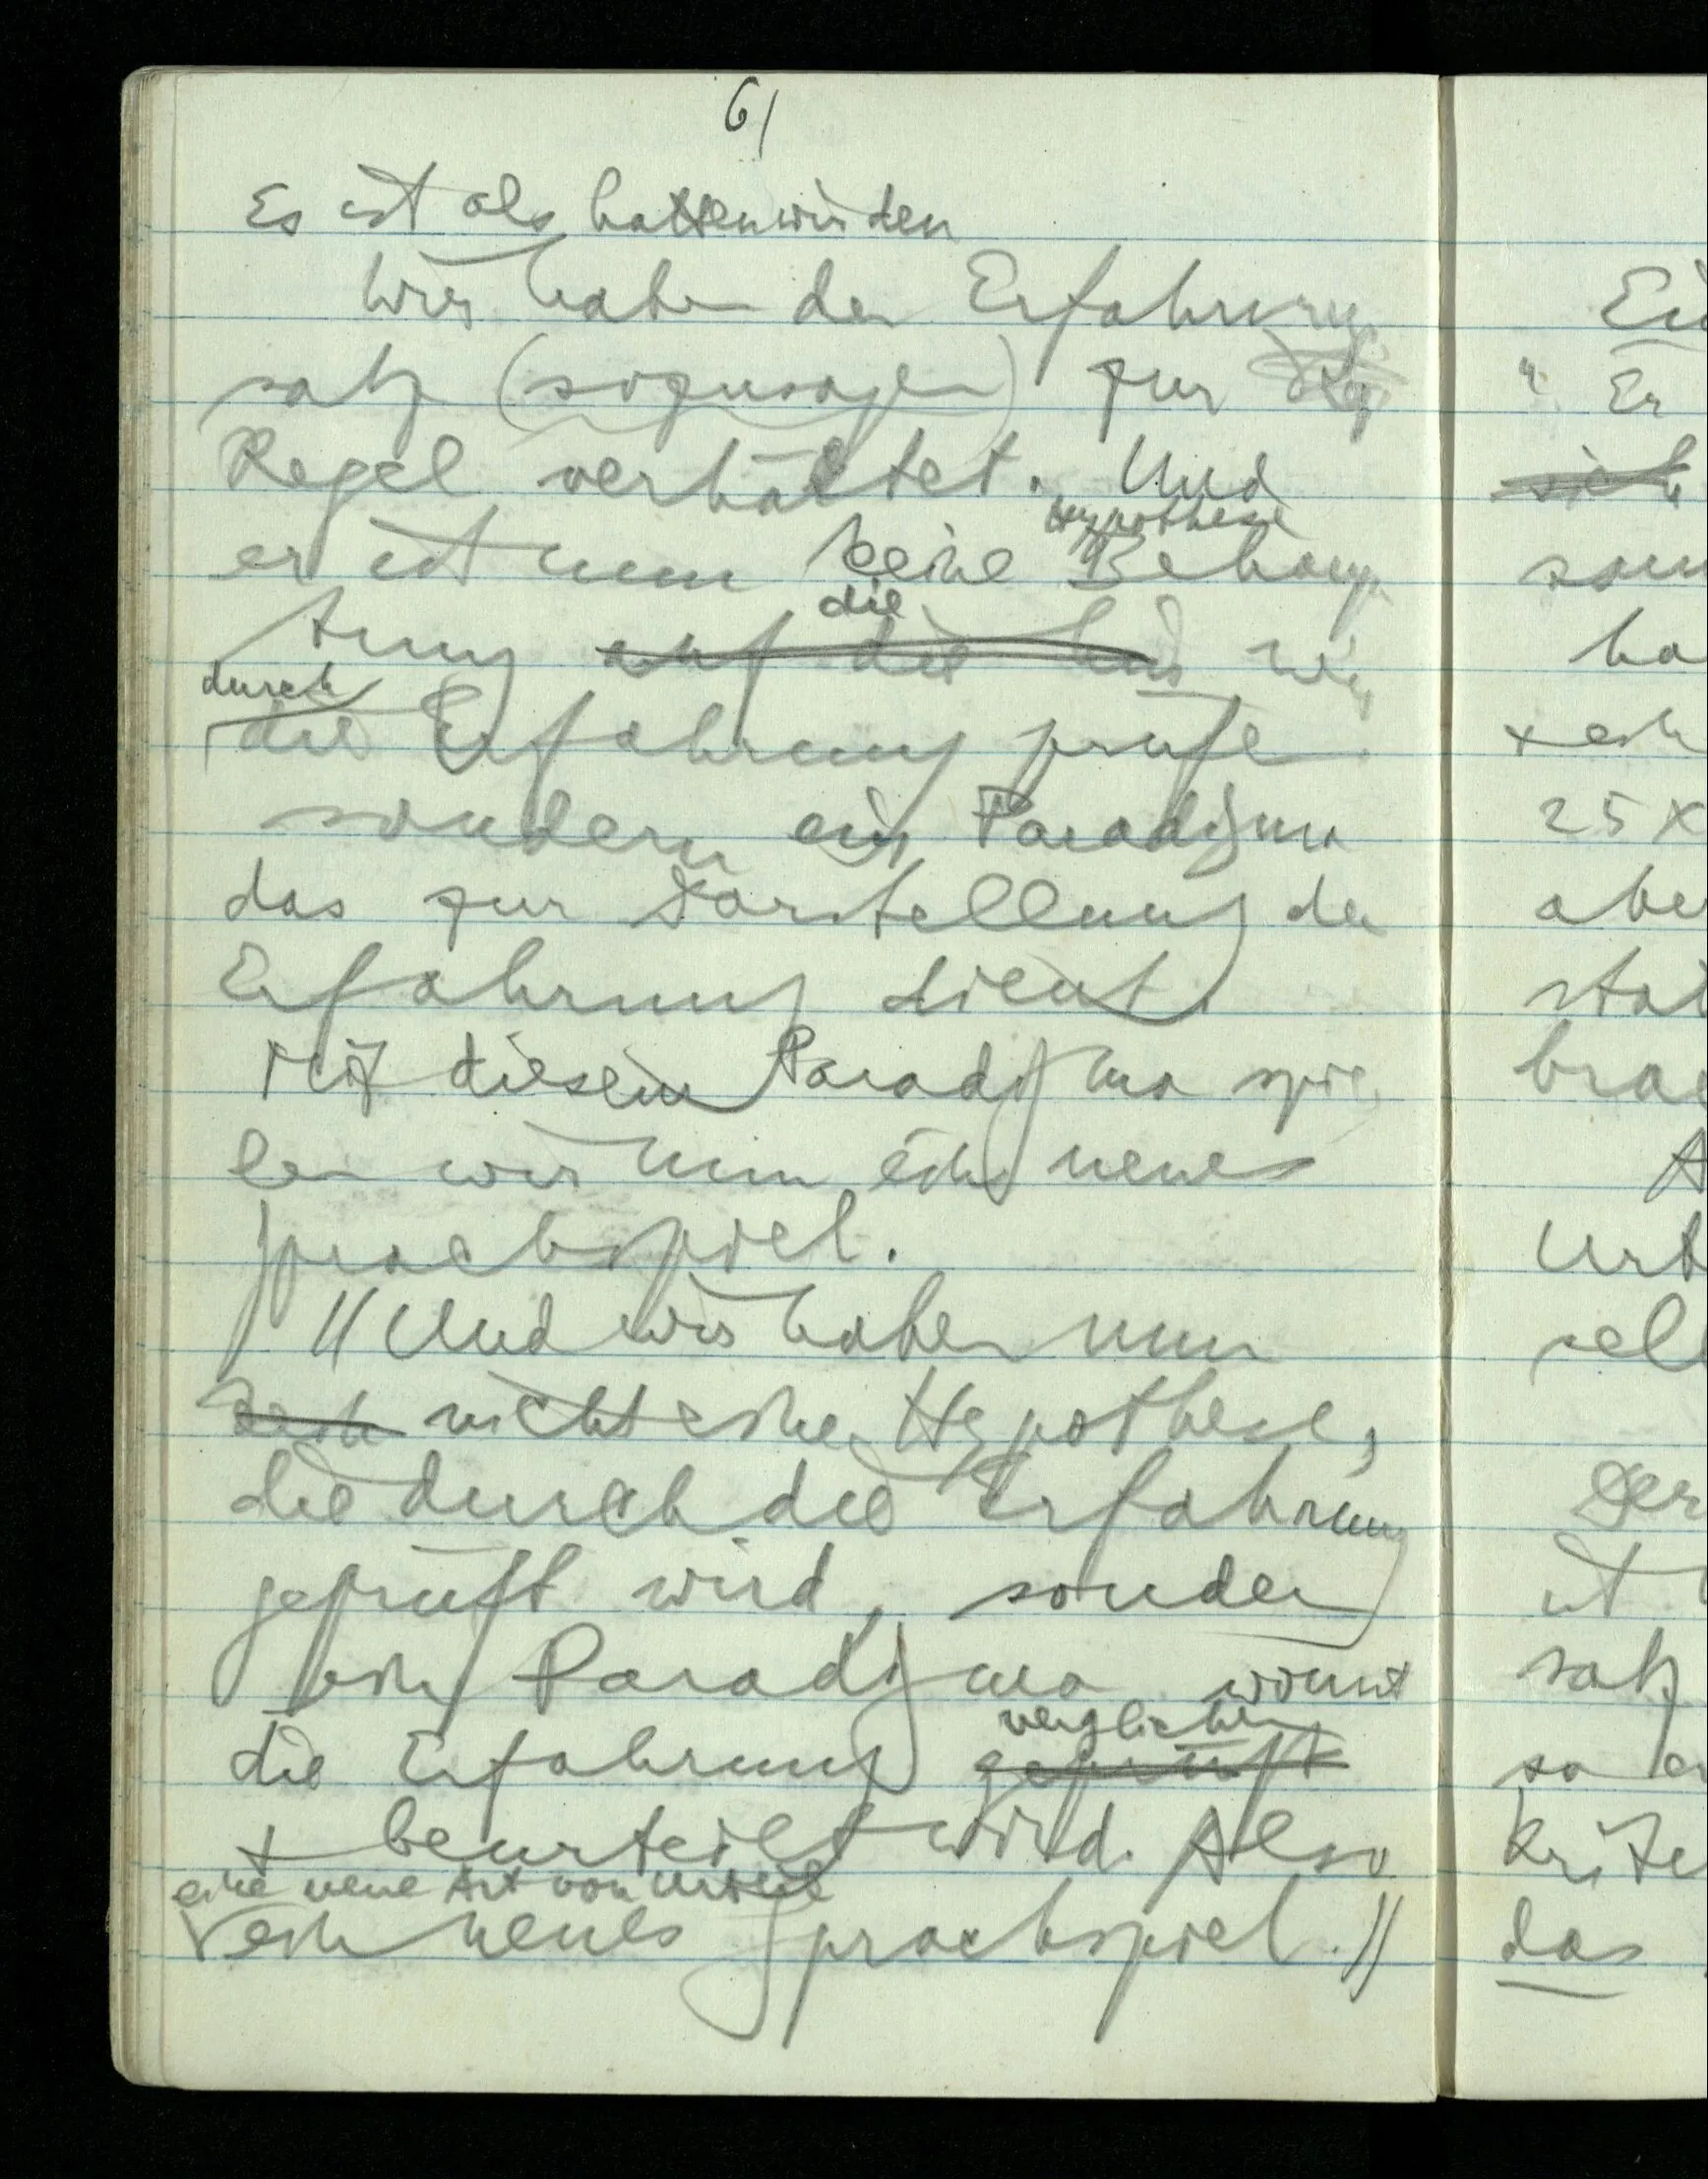 61
Es ist als hatten wir den
Wir haben den Erfahrungs
satz (sozusagen) zur Reg
Regel verhärtet. Und
Hypothese
er ist nun keine Behaup
die
tung auf die hin wir
durch
die Erfahrung prüfe
sondern ein Paradigma
das zur Darstellung der
Erfahrung dient.
Mit diesem Paradigma spie
len wir nun ein neues
Sprachspiel.
// Und wir haben nun
nicht eine Hypothese,
die durch die Erfahrung
geprüft wird, sondern
ein Paradigma womit
verglichen
die Erfahrung geprüft
+ beurteilt wird. Also
eine neue Art von Urteil
ein neues Sprachspiel. //
Ei
" Er
sich
som
ha
x ein
25 x
abe
stat
brau
A
Urt
sel
Der
ist
satz
so er
Krite
das